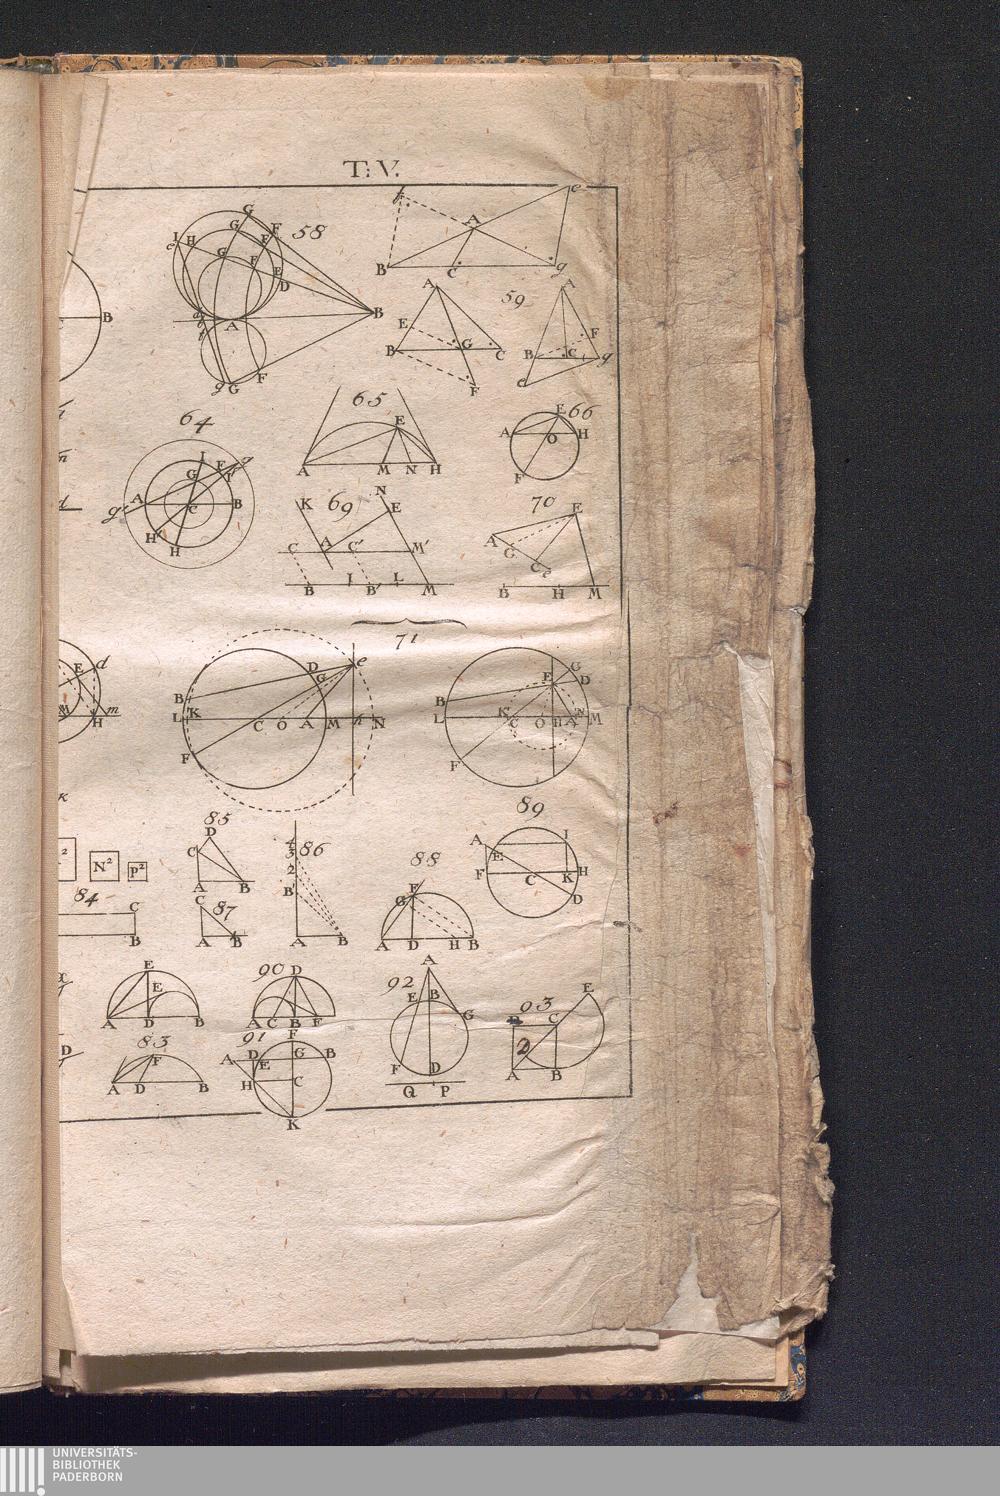 T: V.
f A e
B C g
58
G F
G F
I H G F E
e D
d A B
g G F
59
A A
E F
B G C B C g
F e
B
64
I F g
G
A C B
g H
H
65
E
A M N H
66
E
A O H
F
69
K N E
C A C' M'
B I B' L M
70
E
A G C e
B H M
71
D e
G
B
L K C O A M N
F
G
E D
B
L K C O H A N M
F
E d
M H m
N² P²
84
C
B
85
D
C
A B
86
4
3
2
B'
A B
87
C
A B
88
F
G
A D H B
89
A I
E
F C K H
D
E
E
A D B
90
D
A C B F
92
A
E B
G
F D
Q P
93
E
C
2
A B
83
F
A D B
91
F
A D G B
E
H C
K
D
UNIVERSITÄTS-
BIBLIOTHEK
PADERBORN